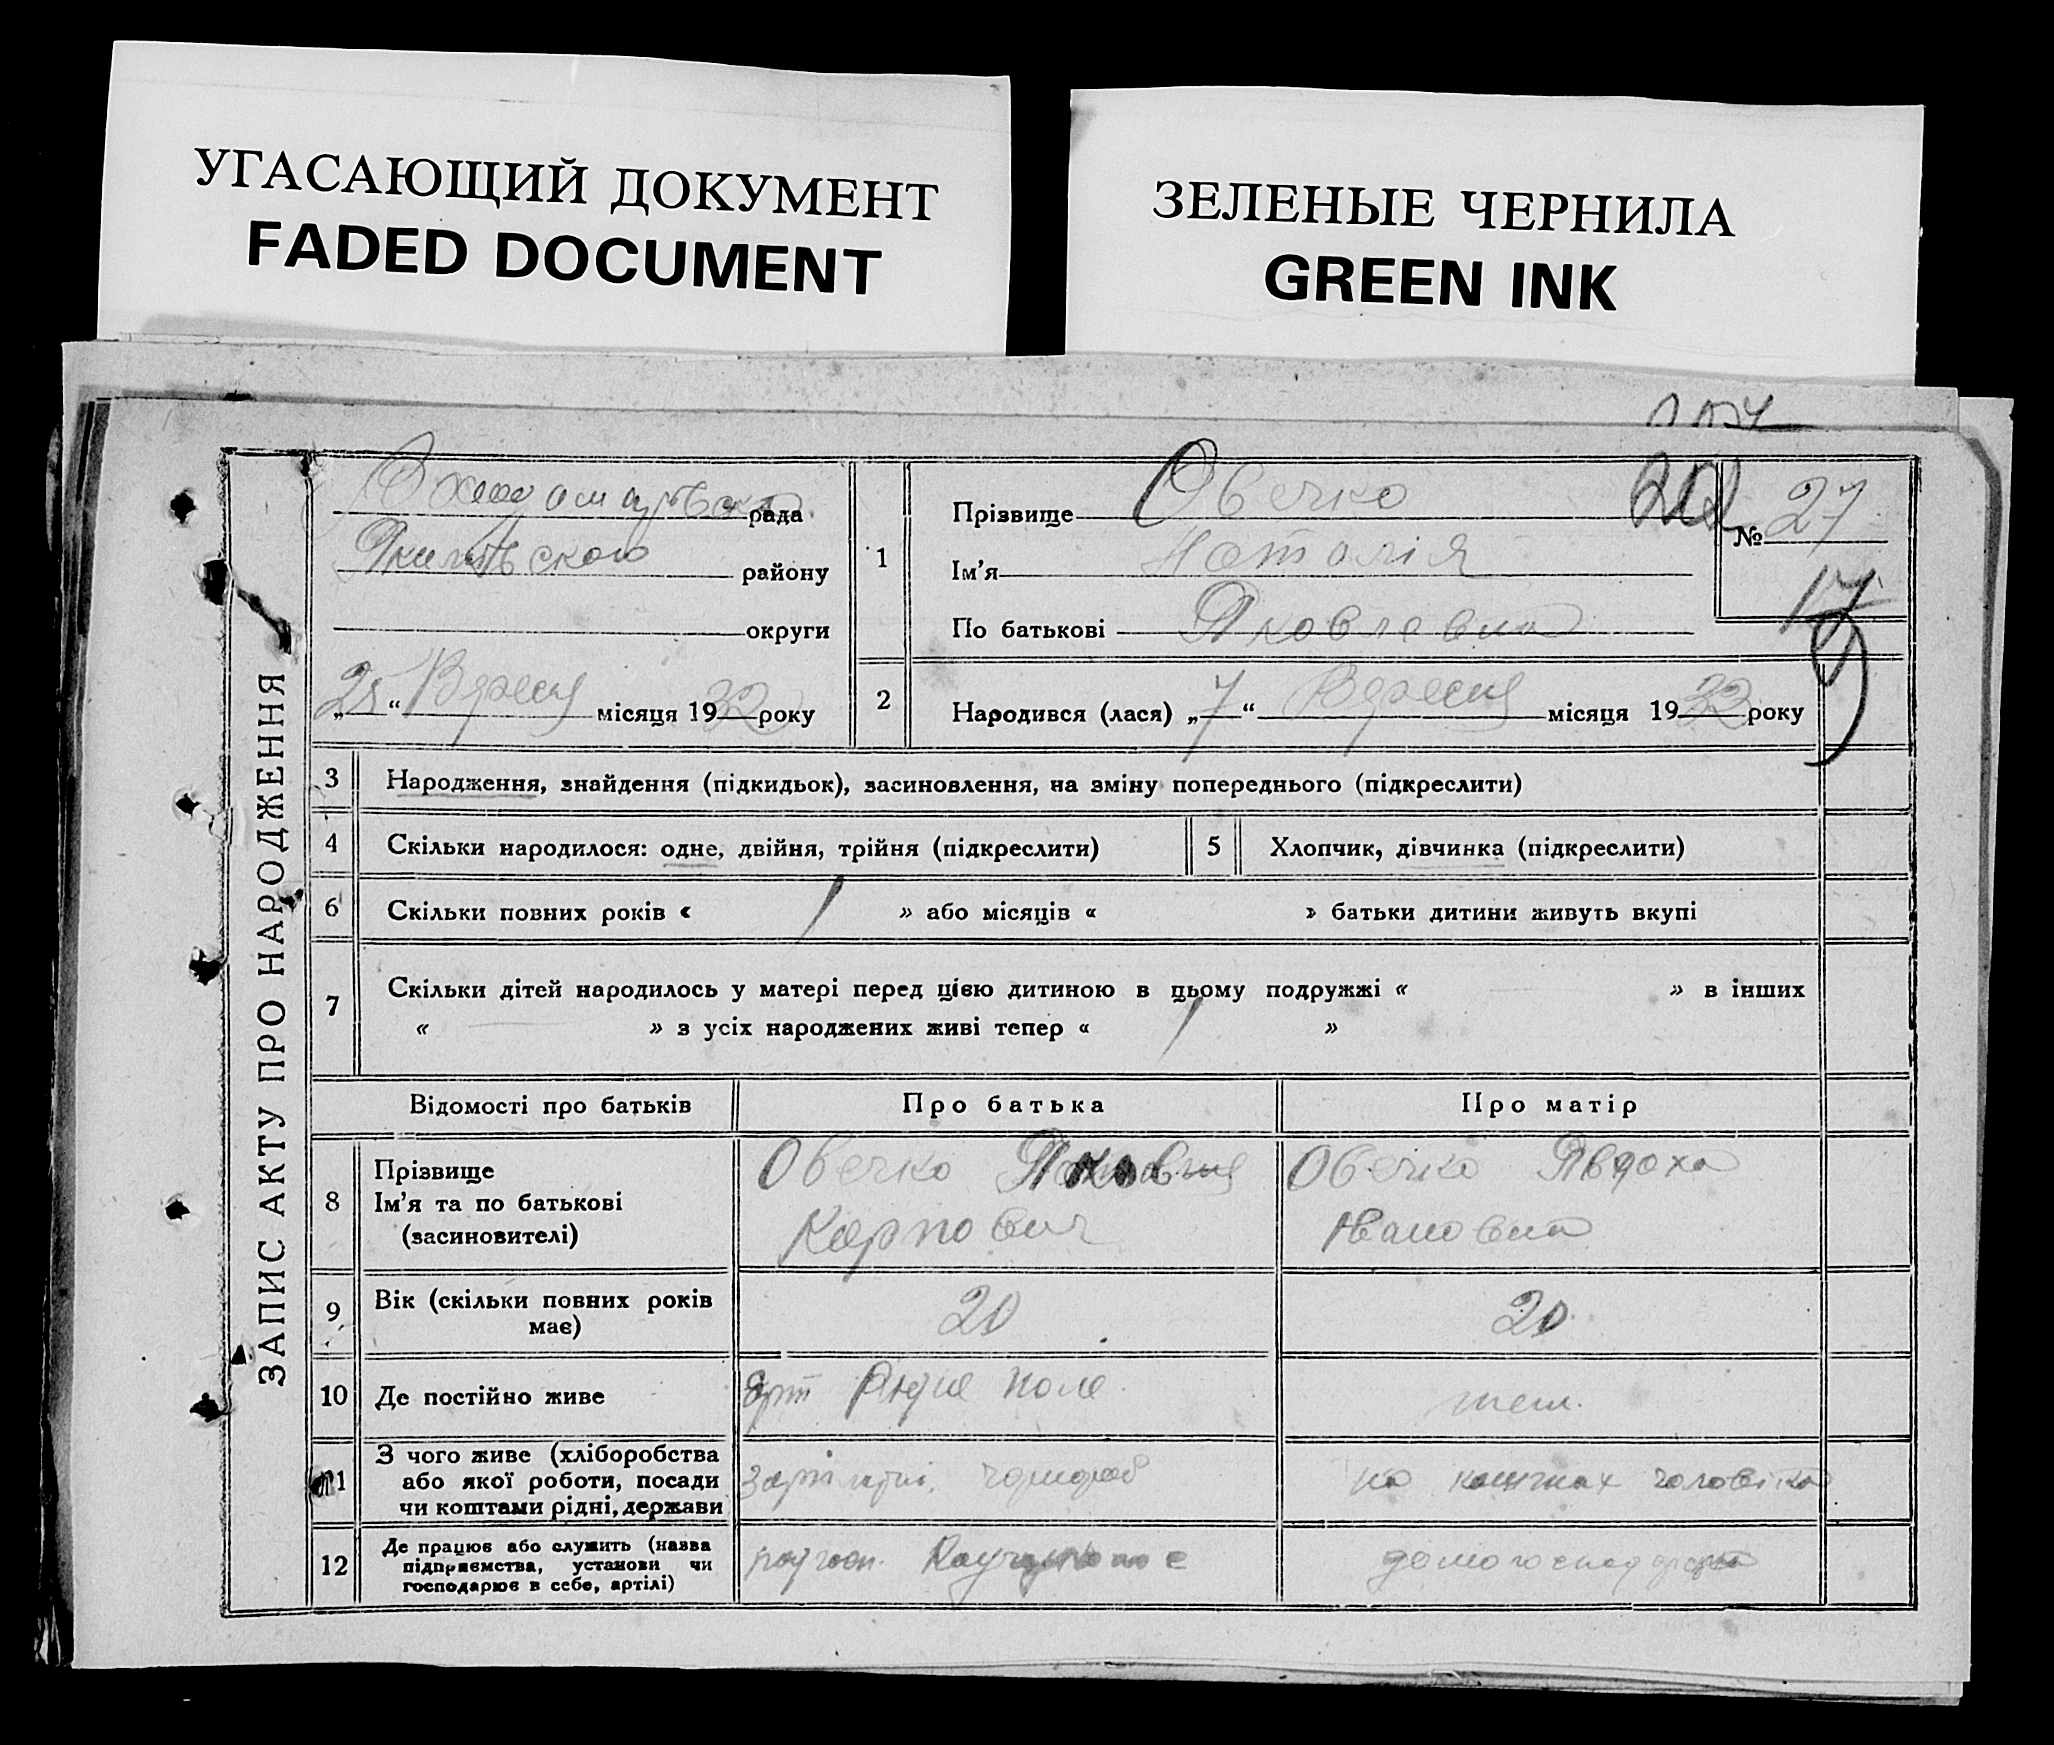 УГАСАЮЩИЙ ДОКУМЕНТ
FADED DOCUMENT
ЗЕЛЕНЫЕ ЧЕРНИЛА
GREEN INK
ЗАПИС АКТУ ПРО НАРОДЖЕННЯ
рада
району
округи
„ “ Вересня місяця 1932 року
1
Прізвище Овечко
Ім'я Наталія
По батькові Яковлевна
№ 27
2
Народився (лася) „7“ Вересня місяця 1932 року
3 Народження, знайдення (підкидьок), засиновлення, на зміну попереднього (підкреслити)
4 Скільки народилося: одне, двійня, трійня (підкреслити)
5 Хлопчик, дівчинка (підкреслити)
6 Скільки повних років « » або місяців « » батьки дитини живуть вкупі
7 Скільки дітей народилось у матері перед цією дитиною в цьому подружжі « » в інших
« » з усіх народжених живі тепер « »
Відомості про батьків Про батька Про матір
8
Прізвище
Ім'я та по батькові
(засиновителі)
Овечко
Карпович
Овечко Явдоха
Ивановна
9 Вік (скільки повних років
має)
20
20
10 Де постійно живе
поле
11 З чого живе (хліборобства
або якої роботи, посади
чи коштами рідні, держави
на коштах чоловіка
12 Де працює або служить (назва
підприємства, установи чи
господарює в себе, артілі)